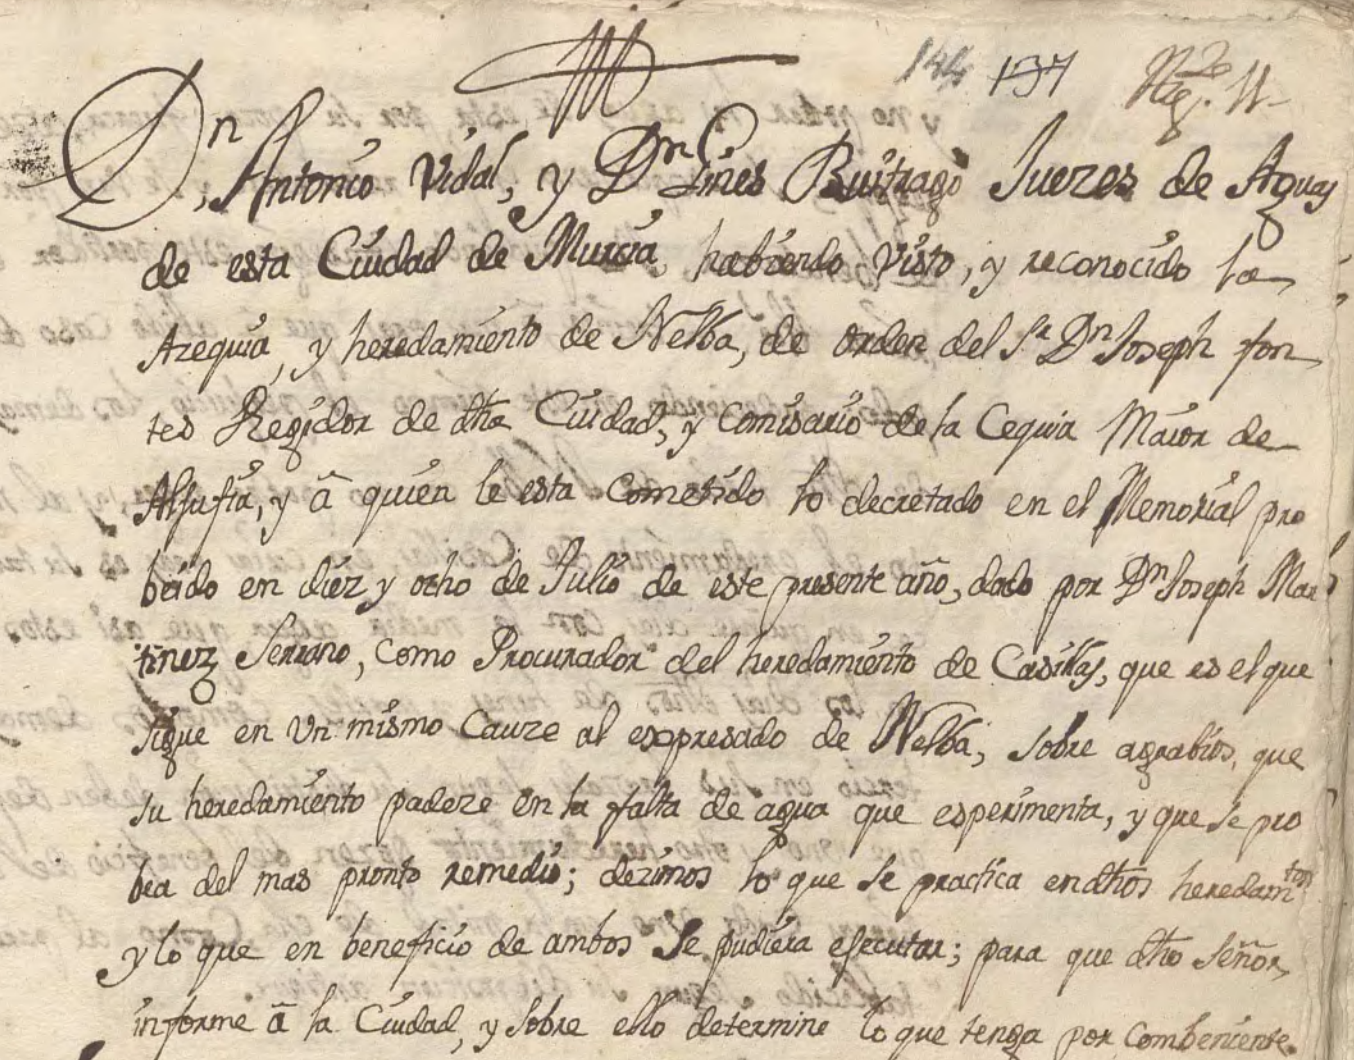 144 137 Nº 11
Dn Antonio Vidal, y Dn Gines Buitrago Juezes de Aguas
de esta Ciudad de Murcia, habiendo visto, y reconocido la
Azequia, y heredamiento de Nelba, de orden del Sr Dn Joseph fon
tes Regidor de dha Ciudad, y Comisario de la Cequia Maior de
Aljufia, y â quien le esta Cometido lo decretado en el Memorial pro
beido en diez y ocho de Julio de este presente año, dado por Dn Joseph Mar
tinez Serrano, como Procurador del heredamiento de Casillas, que es el que
sigue en Un mismo Cauze al expresado de Nelba, sobre agrabios, que
su heredamiento padeze en la falta de agua que esperimenta, y que se pro
bea del mas pronto remedio; dezimos lo que se practica en dhos heredamtos
y lo que en beneficio de ambos se pudiera ejecutar; para que dho Señor,
informe â la Ciudad, y sobre ello determine lo que tenga por combeniente.